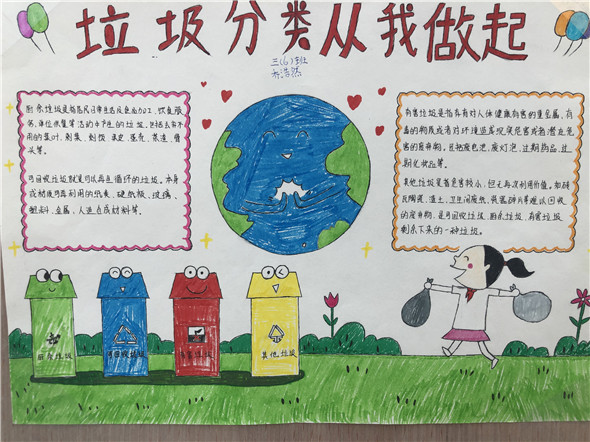 垃圾分类从我做起
三(6)班
厨余垃圾是指居民日常生活及食品加工、饮食服
务、单位供餐等活动中产生的垃圾,包括丢弃不
用的菜叶、剩菜、剩饭、果皮、蛋壳、茶渣、骨
头等。
可回收垃圾就是可以再生循环的垃圾。本身
或材质可再利用的纸类、硬纸板、玻璃、
塑料、金属、人造合成材料等。
有害垃圾是指有对人体健康有害的重金属、有
毒的物质或者对环境造成现实危害或者潜在危
害的废弃物。包括废电池、废灯泡、过期药品、过
期化妆品等。
其他垃圾是指危害较小,但无再次利用价值。如砖
瓦陶瓷、渣土、卫生间废纸、瓷器碎片等难以回收
的废弃物,是可回收垃圾、厨余垃圾、有害垃圾
剩余下来的一种垃圾。
厨余垃圾
可回收垃圾
有害垃圾
其他垃圾